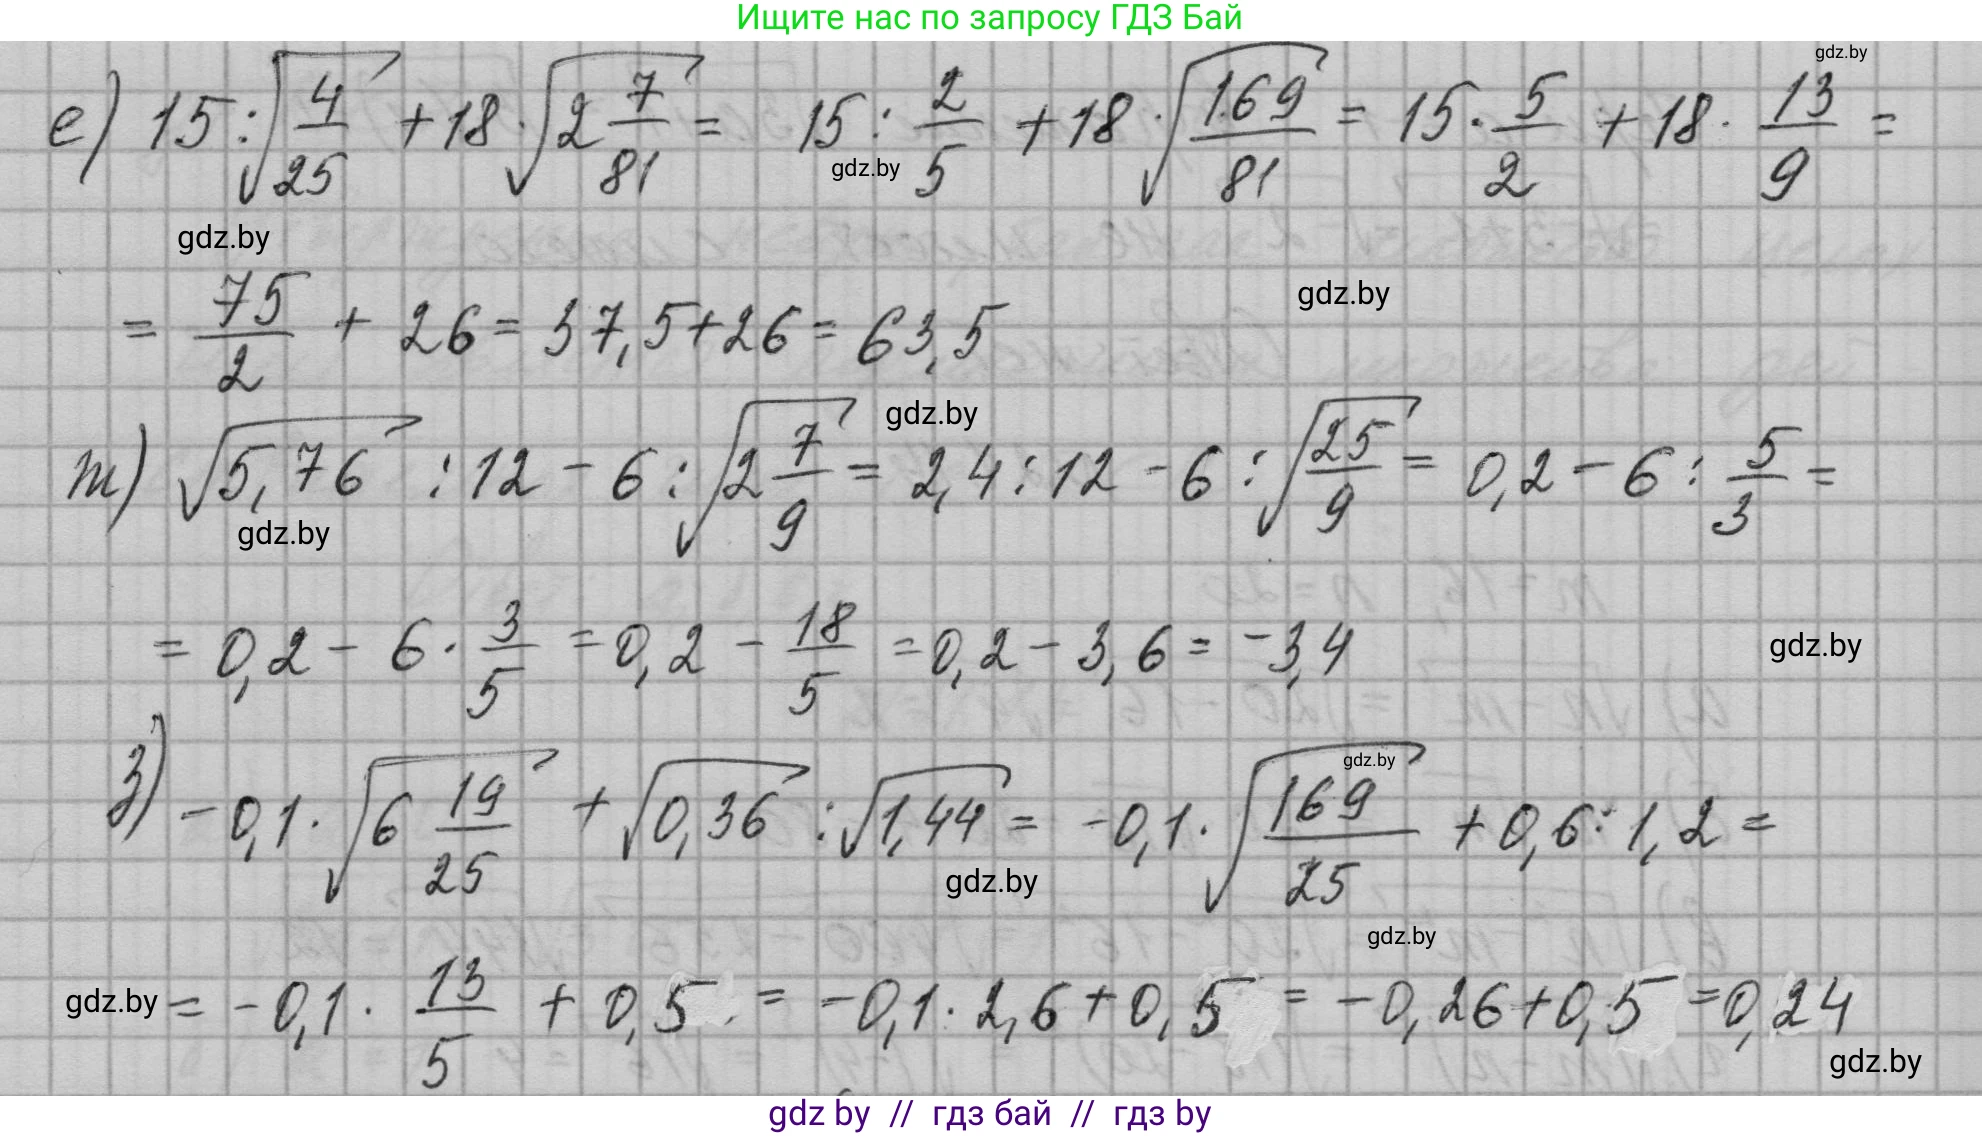 Ищите нас по запросу ГДЗ Бай
gdz.by
е) 15 : √(4/25) + 18 · √(2 7/81) = 15 : 2/5 + 18 · √(169/81) = 15 · 5/2 + 18 · 13/9 =
gdz.by
gdz.by
gdz.by
= 75/2 + 26 = 37,5 + 26 = 63,5
gdz.by
ж) √5,76 : 12 − 6 : √(2 7/9) = 2,4 : 12 − 6 : √(25/9) = 0,2 − 6 : 5/3 =
gdz.by
= 0,2 − 6 · 3/5 = 0,2 − 18/5 = 0,2 − 3,6 = −3,4
gdz.by
gdz.by
з) −0,1 · √(6 19/25) + √0,36 : √1,44 = −0,1 · √(169/25) + 0,6 : 1,2 =
gdz.by
gdz.by
gdz.by
= −0,1 · 13/5 + 0,5 = −0,1 · 2,6 + 0,5 = −0,26 + 0,5 = 0,24
gdz.by
gdz by // гдз бай // гдз by